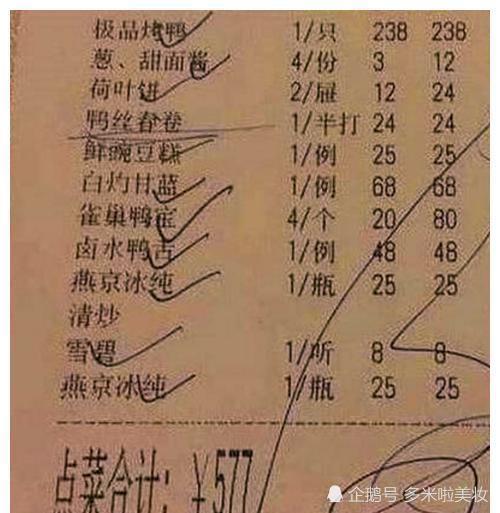 极品烤鸭 1/只 238 238
葱、甜面酱 4/份 3 12
荷叶饼 2/屉 12 24
鸭丝春卷 1/半打 24 24
鲜豌豆糕 1/例 25 25
白灼甘蓝 1/例 68 68
雀巢鸭宝 4/个 20 80
卤水鸭舌 1/例 48 48
燕京冰纯 1/瓶 25 25
清炒
雪碧 1/听 8 8
燕京冰纯 1/瓶 25 25
点菜合计：¥577
企鹅号:多米啦美妆